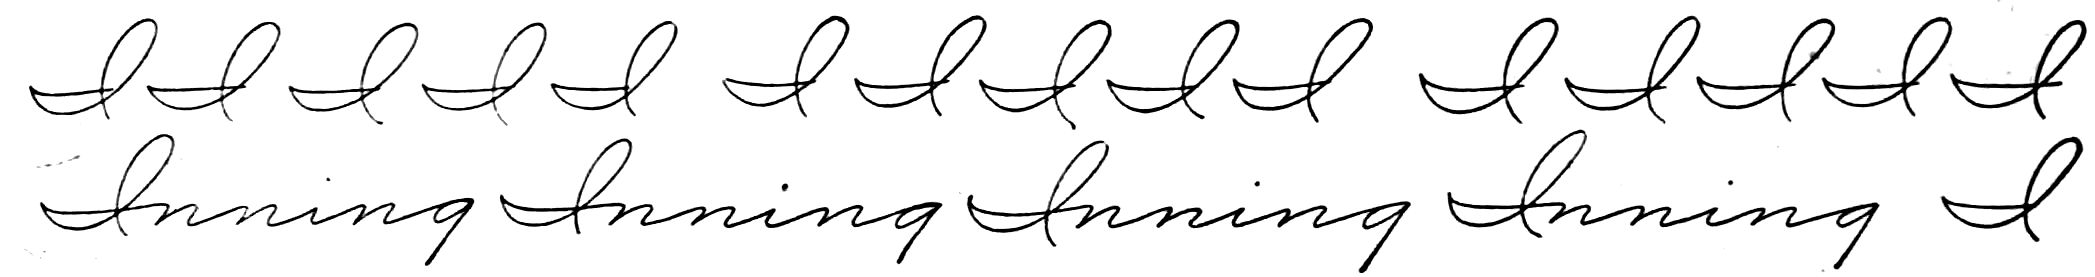 I I I I I I I I I I I I I I I
Inning Inning Inning Inning I